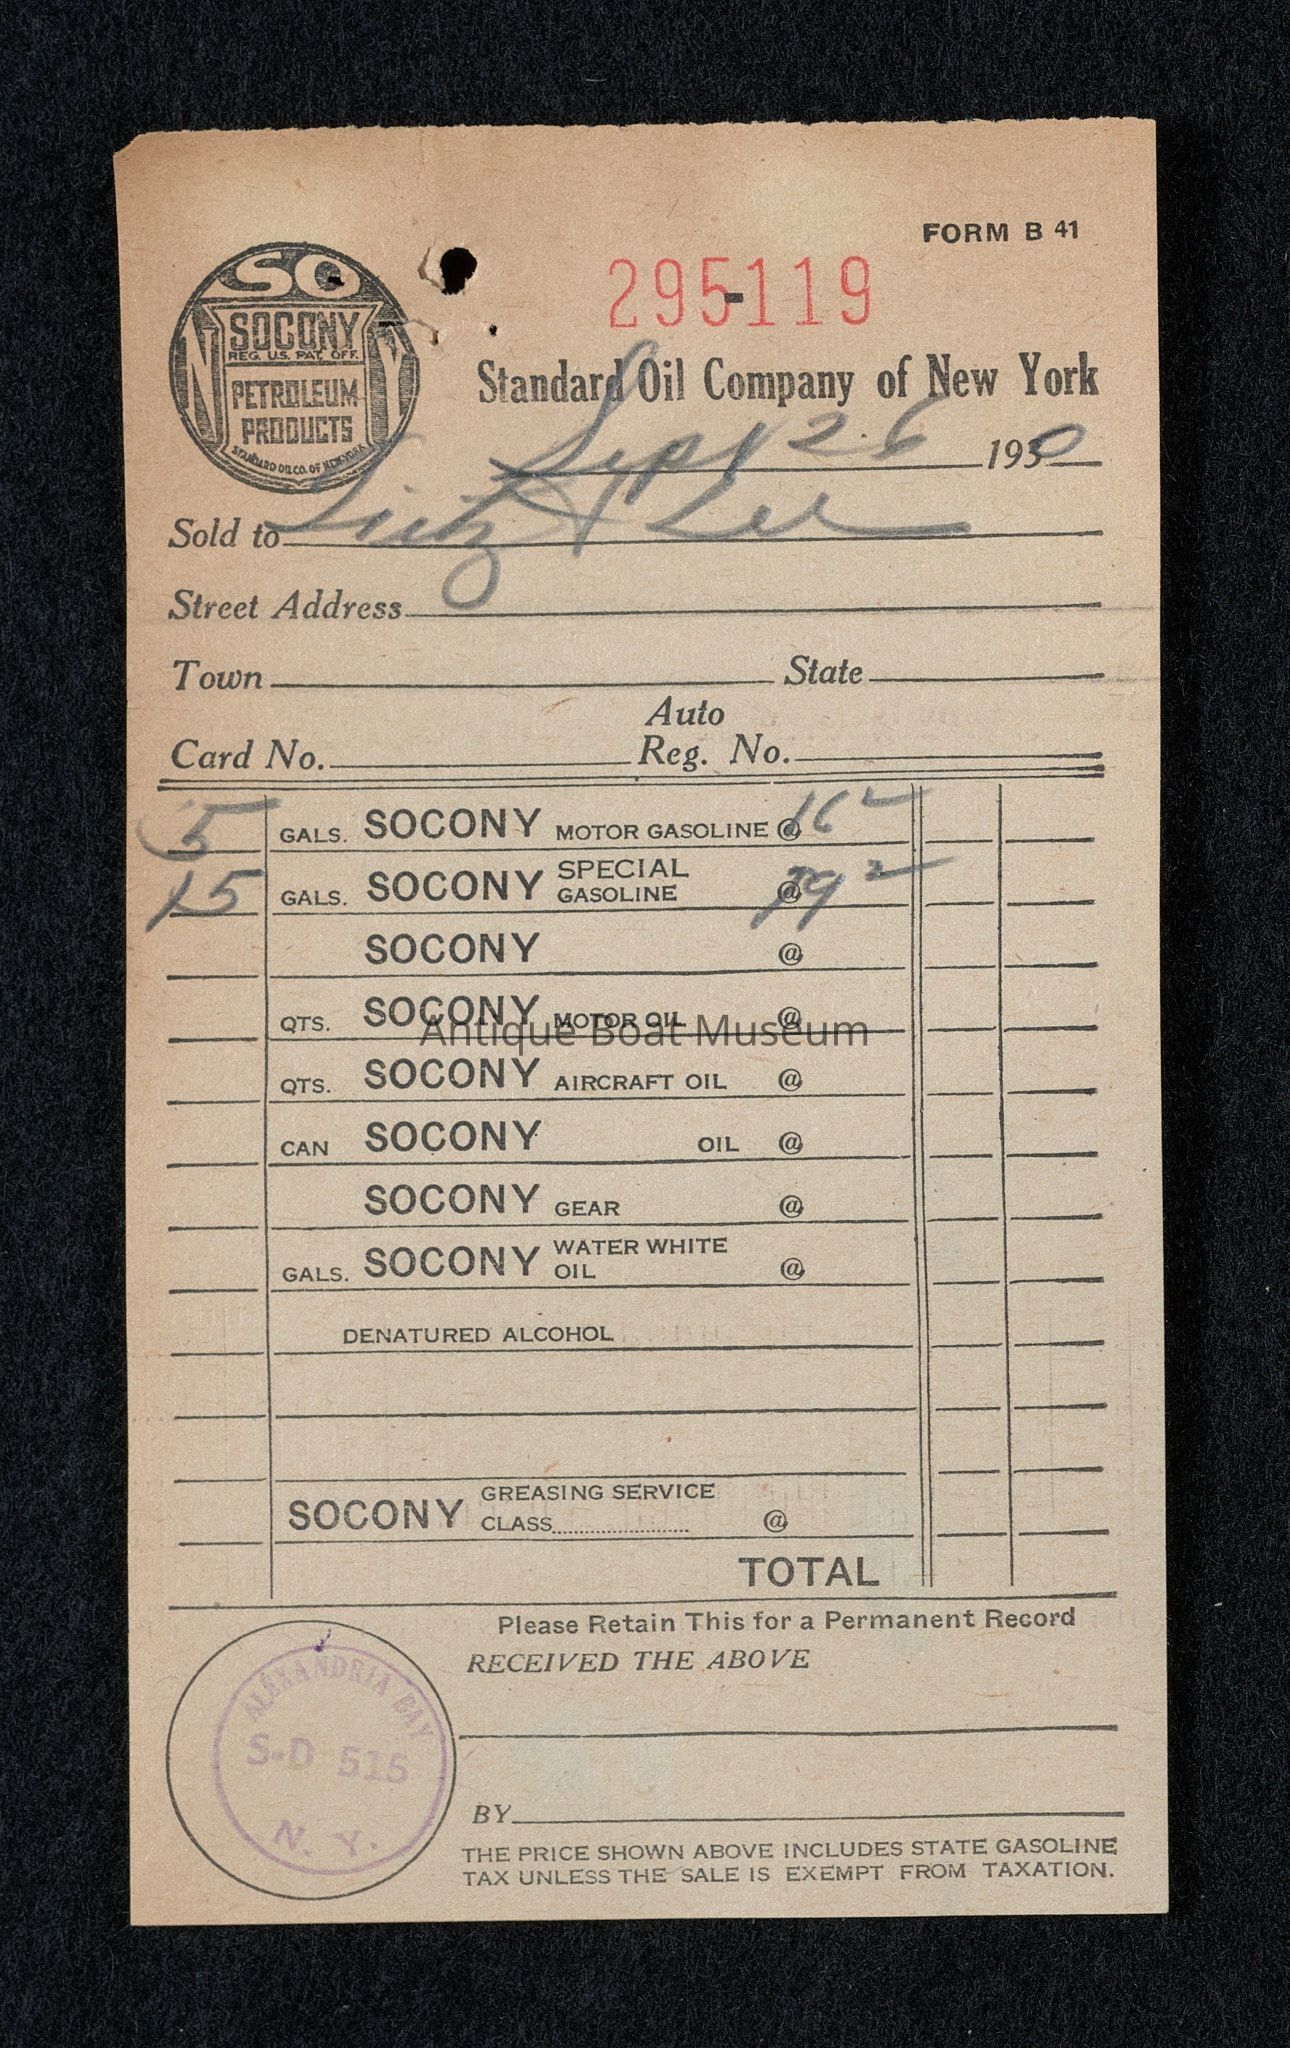 FORM B 41
SO
SOCONY
REG. U.S. PAT. OFF.
PETROLEUM
PRODUCTS
STANDARD OIL CO. OF NEW YORK
N Y
295-119
Standard Oil Company of New York
Sept 26 1930
Sold to Lutz & Lee
Street Address
Town State
Auto
Card No. Reg. No.
5 GALS. SOCONY MOTOR GASOLINE @ 16 2
15 GALS. SOCONY SPECIAL GASOLINE @ 19 2
SOCONY @
QTS. SOCONY MOTOR OIL @
Antique Boat Museum
QTS. SOCONY AIRCRAFT OIL @
CAN SOCONY OIL @
SOCONY GEAR @
GALS. SOCONY WATER WHITE OIL @
DENATURED ALCOHOL
SOCONY GREASING SERVICE CLASS @
TOTAL
Please Retain This for a Permanent Record
RECEIVED THE ABOVE
ALEXANDRIA BAY
S-D 515
N. Y.
BY
THE PRICE SHOWN ABOVE INCLUDES STATE GASOLINE
TAX UNLESS THE SALE IS EXEMPT FROM TAXATION.